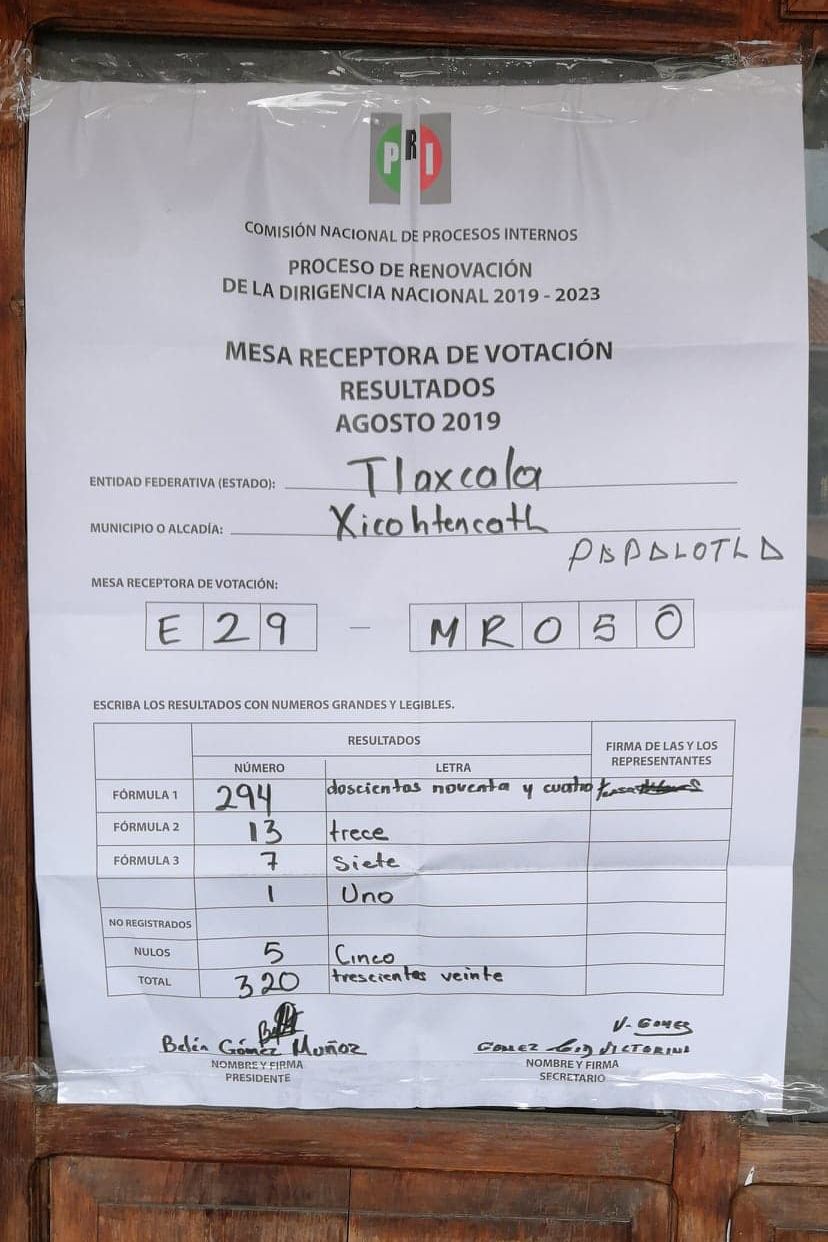 PRI
COMISIÓN NACIONAL DE PROCESOS INTERNOS
PROCESO DE RENOVACIÓN
DE LA DIRIGENCIA NACIONAL 2019 - 2023
MESA RECEPTORA DE VOTACIÓN
RESULTADOS
AGOSTO 2019
ENTIDAD FEDERATIVA (ESTADO): Tlaxcala
MUNICIPIO O ALCADÍA: Xicohtencatl
PAPALOTLA
MESA RECEPTORA DE VOTACIÓN:
E 2 9 — M R 0 5 0
ESCRIBA LOS RESULTADOS CON NUMEROS GRANDES Y LEGIBLES.
RESULTADOS
FIRMA DE LAS Y LOS
REPRESENTANTES
NÚMERO LETRA
FÓRMULA 1 294 doscientos noventa y cuatro
FÓRMULA 2 13 trece
FÓRMULA 3 7 Siete
1 Uno
NO REGISTRADOS
NULOS 5 Cinco
TOTAL 320 trescientos veinte
Belén Gómez Muñoz
V. GOMEZ
GOMEZ VICTORINO
NOMBRE Y FIRMA
PRESIDENTE
NOMBRE Y FIRMA
SECRETARIO